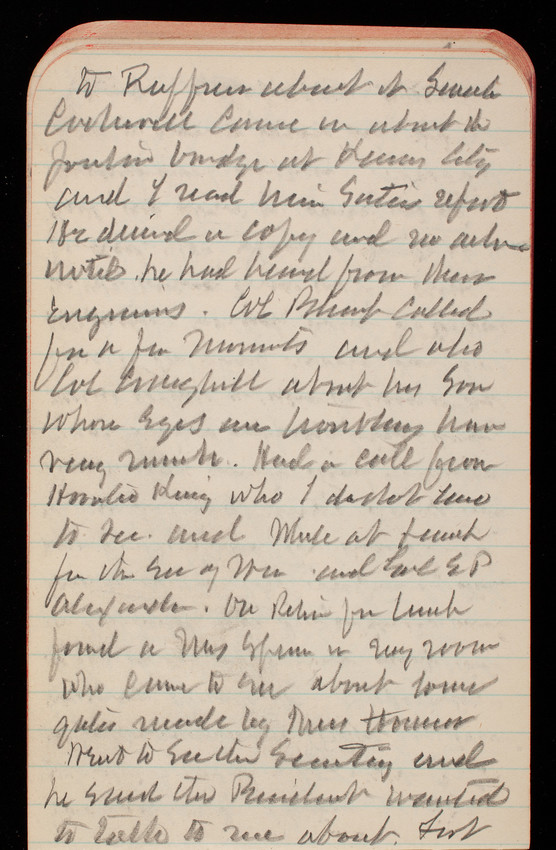 to Ruffner about it Senator
Cockrell came in about the
bridge at Kansas City
and I read him report
He desired a copy and no action
until he had heard from their
Engineers. Col called
for a few moments and also
Col about his Son
whose Eyes are troubling him
very much. Had a call from
Horatio King who I do not
to see. and While at lunch
for the Sec of War and Col E P
Alexander. On Return from lunch
found a Mrs in my room
who came to see about some
gates made by
Went to See the Secretary and
he said the President wanted
to talk to me about. Fort